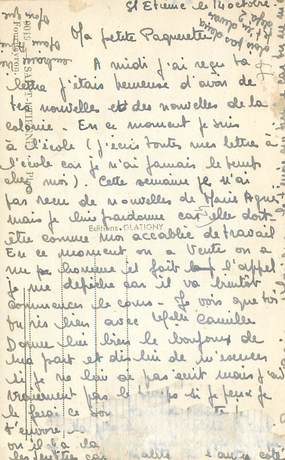 St Etienne le 14 octobre
Ma petite Paquerette
A midi j'ai reçu ta
lettre j'étais heureuse d'avoir de
tes nouvelles et des nouvelles de la
colonie. En ce moment je suis
à l'école (j'écris toutes mes lettres à
l'école car je n'ai jamais le temps
chez moi). Cette semaine je n'ai
pas reçu de nouvelles de Marie Agnes
mais je lui pardonne car elle doit
etre comme moi accablée de travail
En ce moment on a on a
un homme il fait l'appel
je me dépêche car il va bientôt
commencer le cours. Je vois que tu
bien avec Melle Camille
Donne lui bien le bonjour de
ma part et dis-lui de m'excuser
si je ne lui ai pas écrit mais j'ai
vraiment pas le temps si je peux je
le ferai ce soir
t'envoie
on il y a la
les fenêtres l'autre côté
Editions GLATIGNY